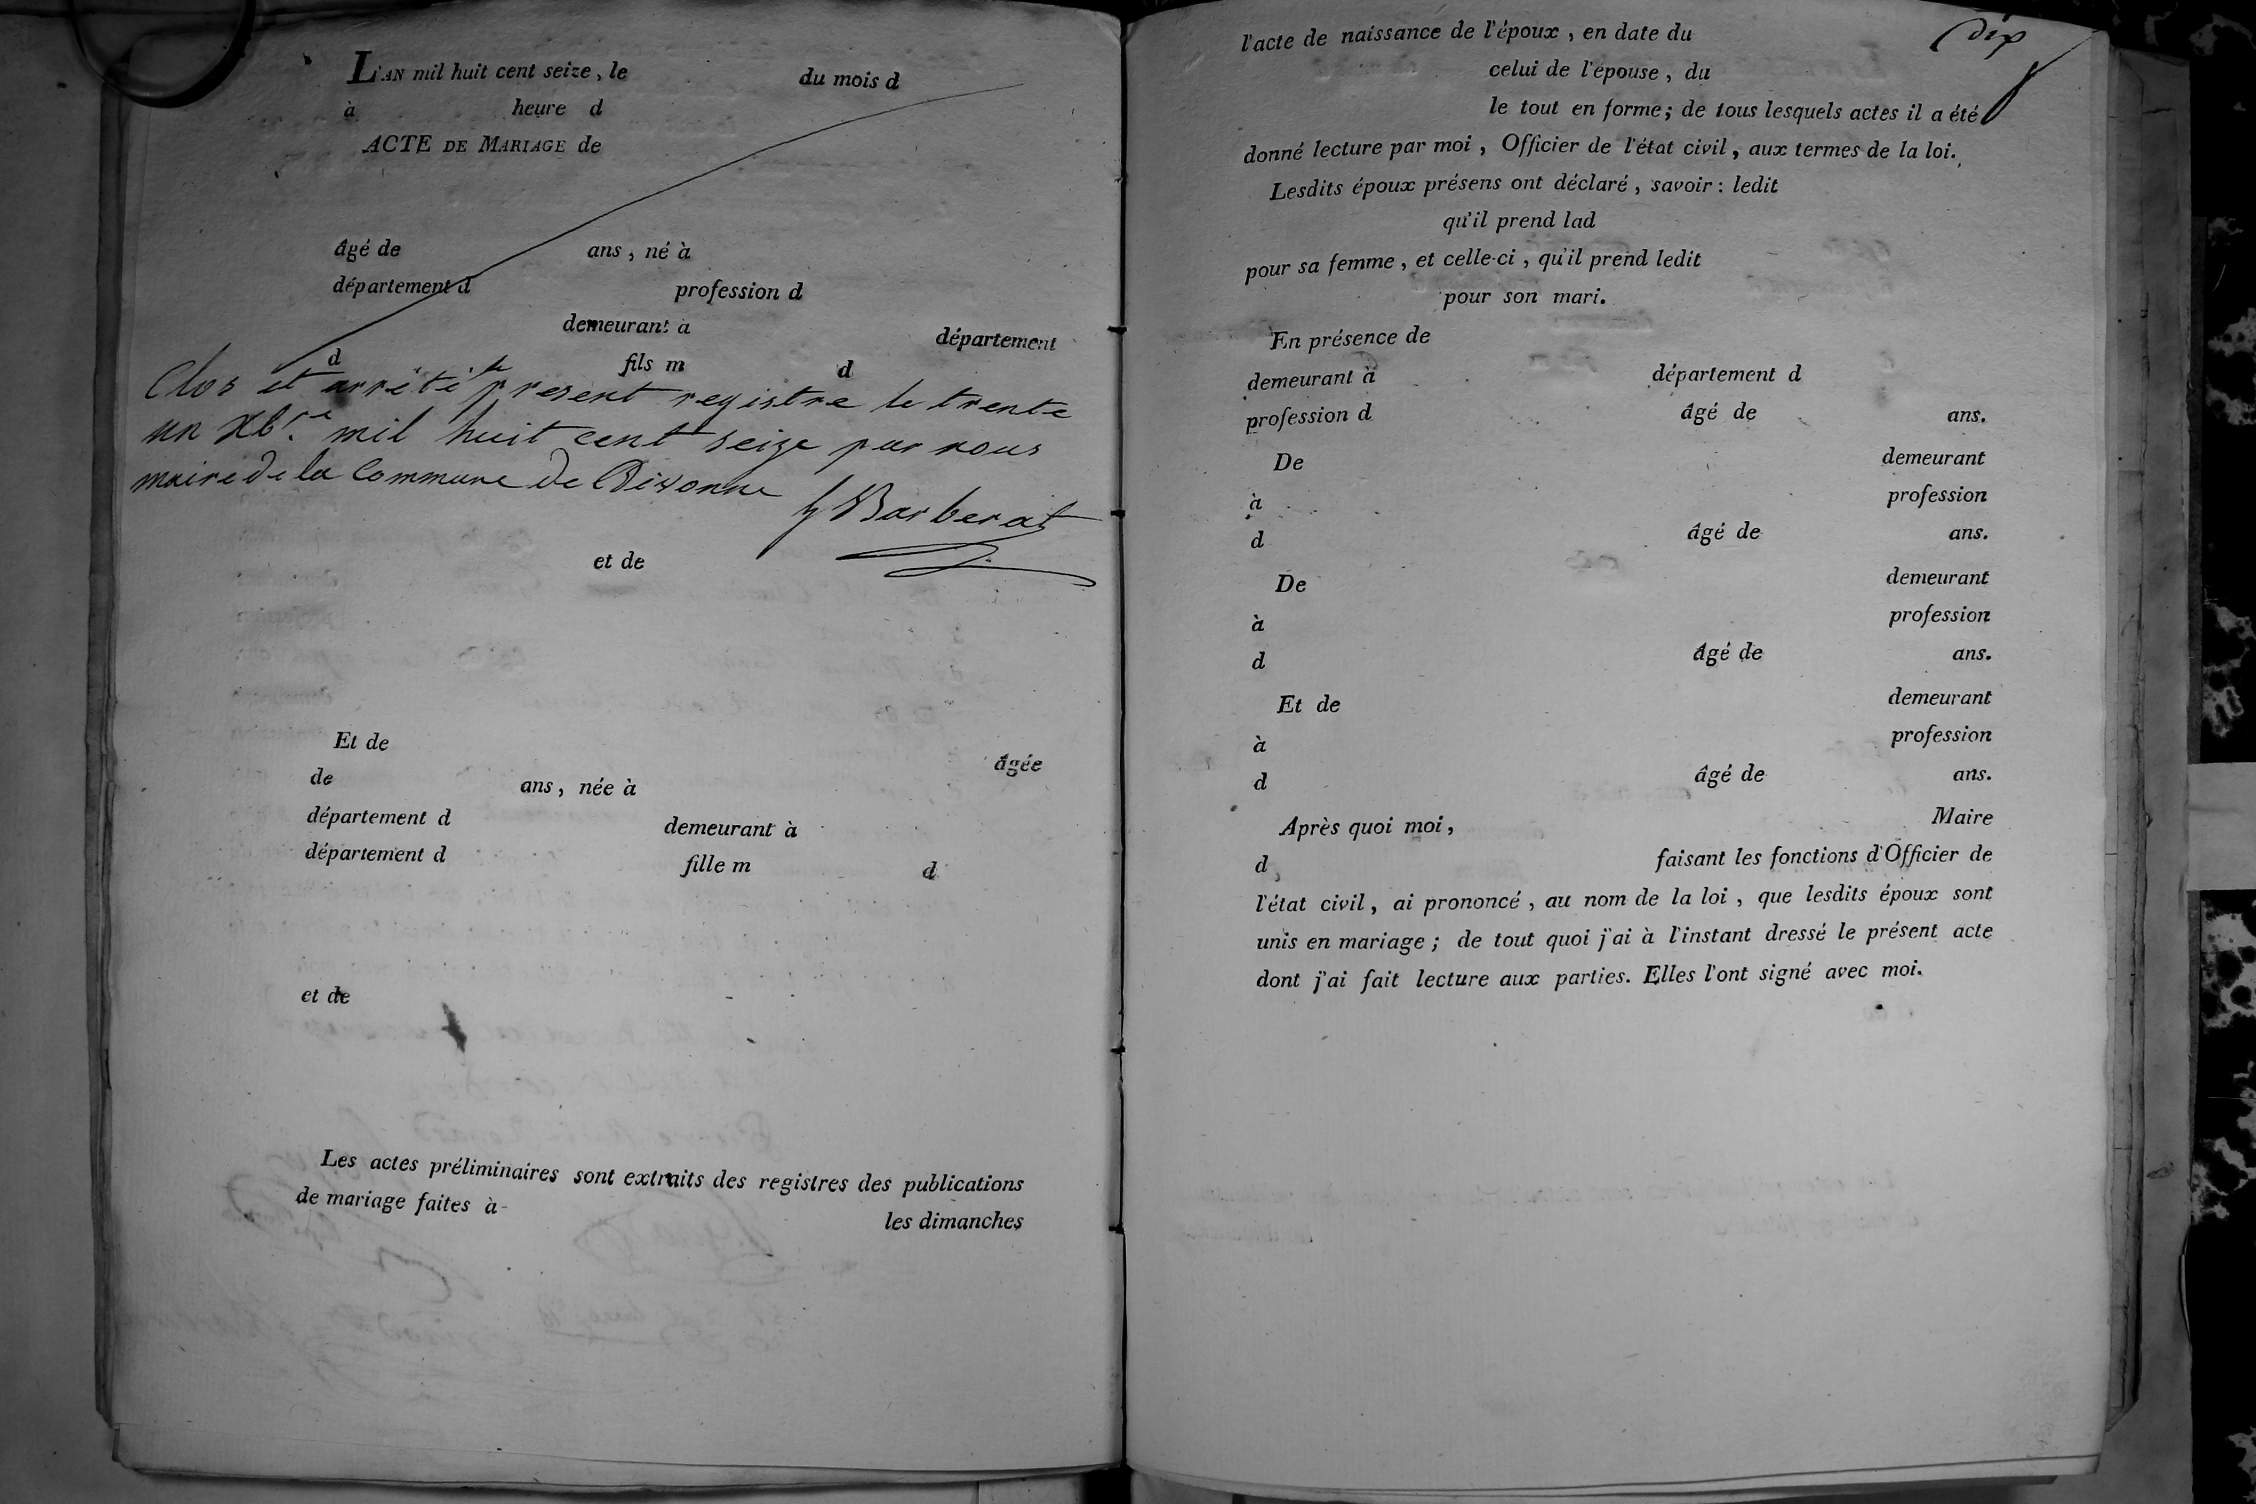 L'AN mil huit cent seize, le du mois d
à heure d
ACTE DE MARIAGE de
âgé de ans, né à
département d profession d
demeurant à département
d fils m d
Clos et arrêté le present registre le trente
un Xb.re mil huit cent seize par nous
maire de la Commune de Divonne
Barberat
et de
Et de âgée
de ans, née à
département d demeurant à
département d fille m d
et de
Les actes préliminaires sont extraits des registres des publications
de mariage faites à les dimanches
dix
l'acte de naissance de l'époux, en date du
celui de l'épouse, du
le tout en forme; de tous lesquels actes il a été
donné lecture par moi, Officier de l'état civil, aux termes de la loi.
Lesdits époux présens ont déclaré, savoir: ledit
qu'il prend lad
pour sa femme, et celle-ci, qu'il prend ledit
pour son mari.
En présence de
demeurant à département d
profession d âgé de ans.
De demeurant
à profession
d âgé de ans.
De demeurant
à profession
d âgé de ans.
Et de demeurant
à profession
d âgé de ans.
Après quoi moi, Maire
d faisant les fonctions d'Officier de
l'état civil, ai prononcé, au nom de la loi, que lesdits époux sont
unis en mariage; de tout quoi j'ai à l'instant dressé le présent acte
dont j'ai fait lecture aux parties. Elles l'ont signé avec moi.